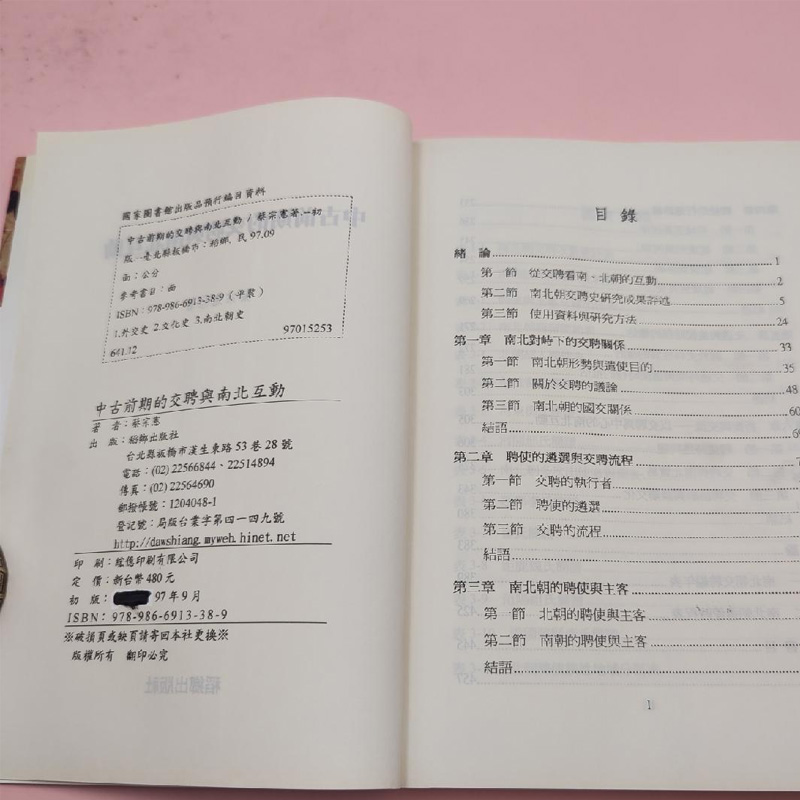 國家圖書館出版品預行編目資料
中古前期的交聘與南北互動 / 蔡宗憲著.一初
版.--臺北縣板橋市：稻鄉，民 97.09
面：公分
參考書目：面
ISBN：978-986-6913-38-9（平裝）
1.外交史 2.文化史 3.南北朝史
641.12 97015253
中古前期的交聘與南北互動
著 者：蔡宗憲
出 版：稻鄉出版社
台北縣板橋市漢生東路 53 巷 28 號
電話：(02) 22566844、22514894
傳真：(02) 22564690
郵撥帳號：1204048-1
登記號：局版台業字第四一四九號
http://dawshiang.myweb.hinet.net
印 刷：鋐億印刷有限公司
定 價：新台幣 480 元
初 版：97 年 9 月
ISBN：978-986-6913-38-9
※破損頁或缺頁請寄回本社更換※
版權所有 翻印必究
目 錄
緒 論 1
第一節 從交聘看南、北朝的互動 2
第二節 南北朝交聘史研究成果評述 5
第三節 使用資料與研究方法 24
第一章 南北對峙下的交聘關係 33
第一節 南北朝形勢與遣使目的 35
第二節 關於交聘的議論 48
第三節 南北朝的國交關係 60
結語
第二章 聘使的遴選與交聘流程
第一節 交聘的執行者
第二節 聘使的遴選
第三節 交聘的流程
結語
第三章 南北朝的聘使與主客
第一節 北朝的聘使與主客
第二節 南朝的聘使與主客
結語
1